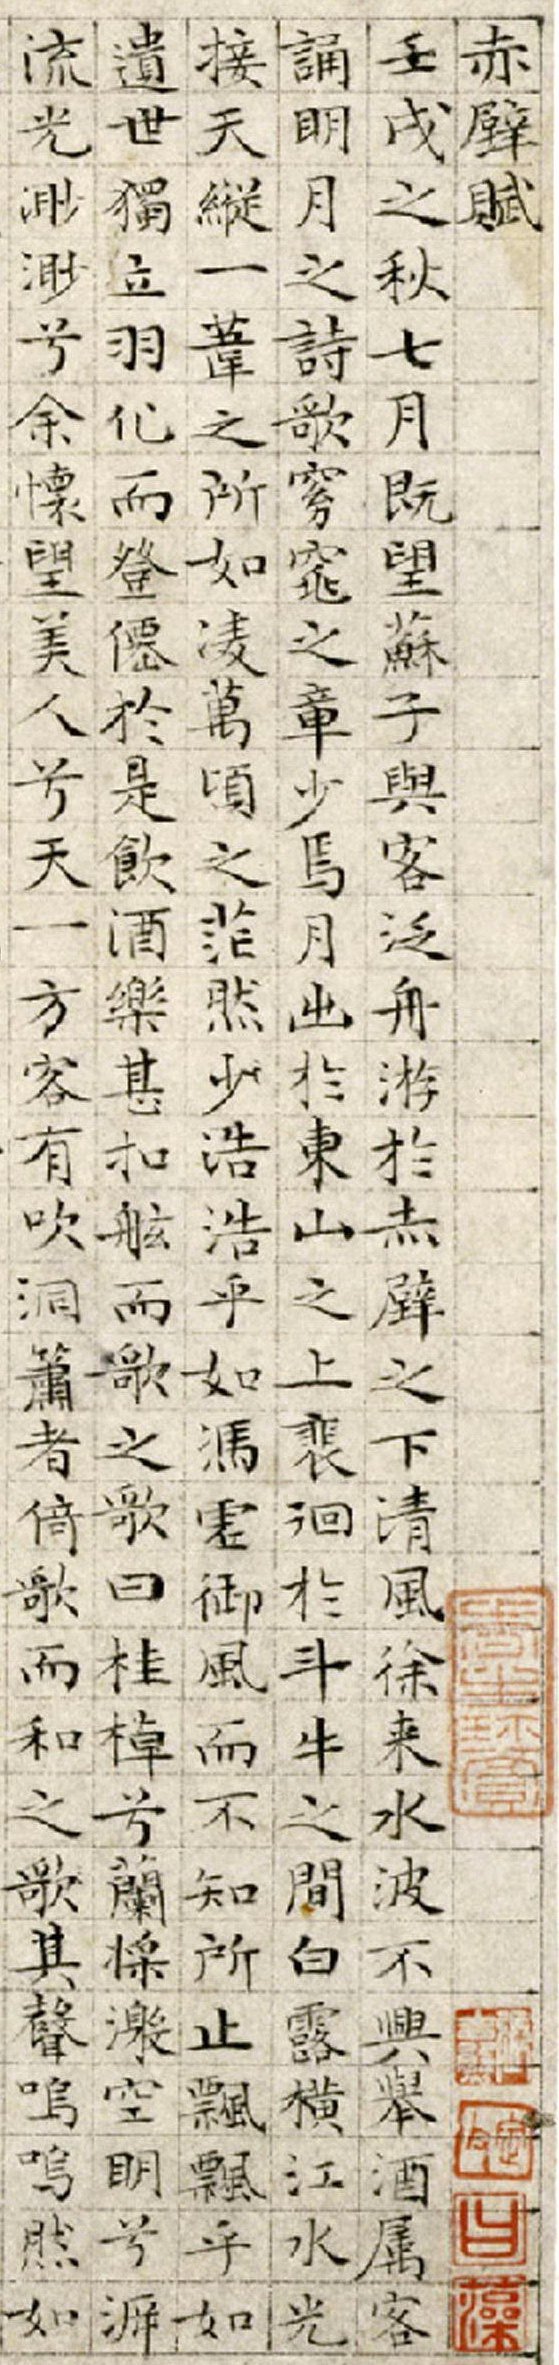 赤壁賦
壬戌之秋七月既望蘇子與客泛舟游於赤壁之下清風徐来水波不興舉酒属客
誦明月之詩歌窈窕之章少焉月出於東山之上裴徊於斗牛之間白露橫江水光
接天縱一葦之所如凌萬頃之茫然少浩浩乎如馮虛御風而不知所止飄飄乎如
遺世獨立羽化而登僊於是飲酒樂甚扣舷而歌之歌曰桂棹兮蘭槳激空明兮泝
流光渺渺兮余懷望美人兮天一方客有吹洞簫者倚歌而和之歌其聲嗚嗚然如